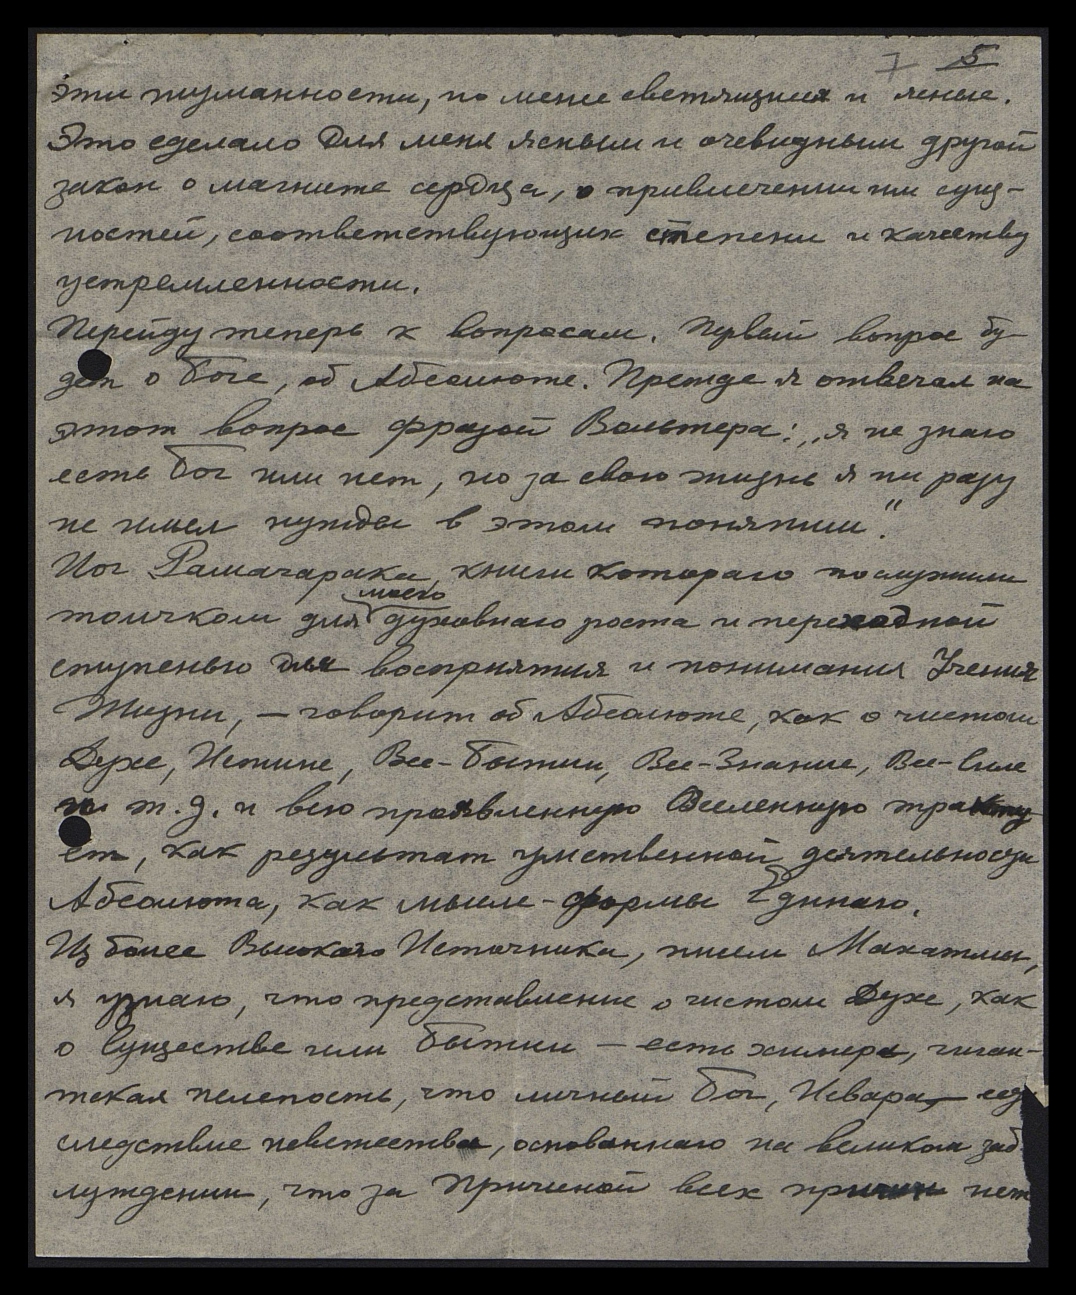 7 5
эти туманности, но менее светящиеся и ясные.
Это сделало для меня ясным и очевидным другой
закон о магните сердца, о привлечении им сущ-
ностей, соответствующих степени и качеству
устремленности.
Перейду теперь к вопросам. Первый вопрос бу-
дет о Боге, об Абсолюте. Прежде я отвечал на
этот вопрос фразой Вольтера: „я не знаю
есть Бог или нет, но за свою жизнь я ни разу
не имел нужды в этом понятии“.
Йог Рамачарака, книги котораго послужили
толчком для моего духовнаго роста и переходной
ступенью для восприятия и понимания Учения
Жизни, — говорит об Абсолюте, как о чистом
Духе, Истине, Все-Бытии, Все-Знание, Все-Силе
и т.д. и всю проявленную Вселенную тракту
ет, как результат умственной деятельности
Абсолюта, как мысле-формы Единаго.
Из более Высокаго Источника, писем Махатмы,
я узнаю, что представление о чистом Духе, как
о Существе или Бытии — есть химера, гиган-
тская нелепость, что личный Бог, Исвара,
следствие невежества, основаннаго на великом заб
луждении, что за Причиной всех причин нет